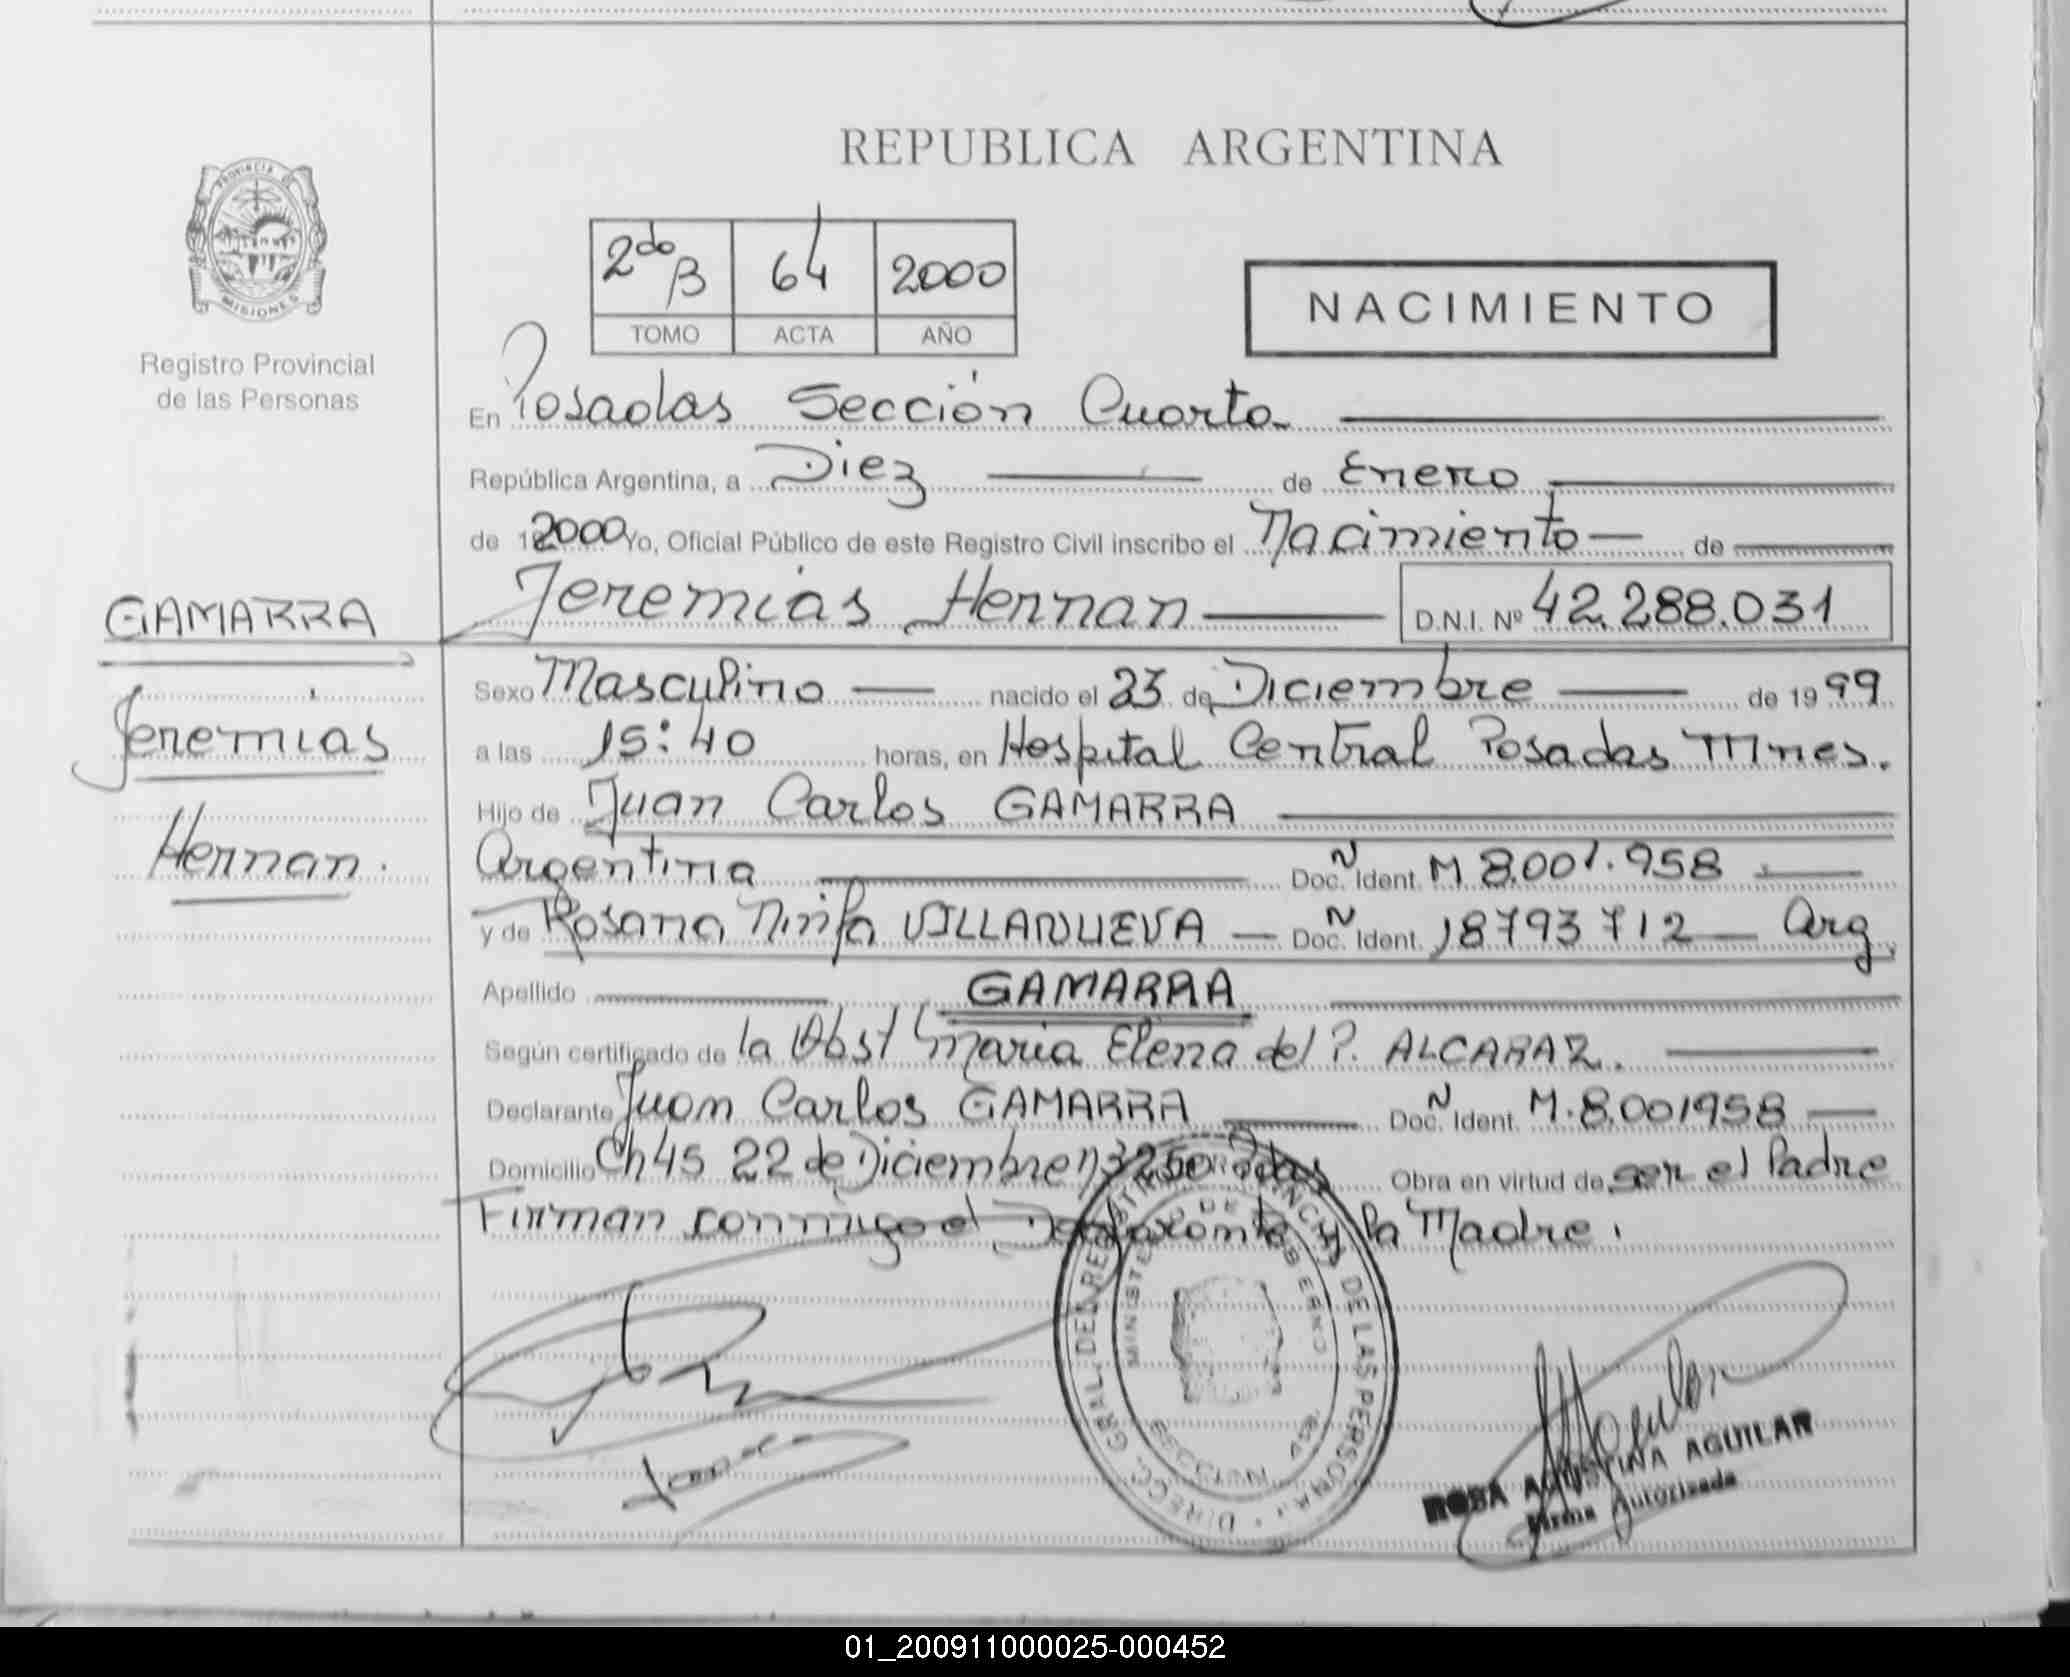 REPUBLICA ARGENTINA
PROVINCIA DE
MISIONES
Registro Provincial
de las Personas
2do B 64 2000
TOMO ACTA AÑO
NACIMIENTO
En Posadas Sección Cuarta
República Argentina, a Diez de Enero
de 2000 Yo, Oficial Público de este Registro Civil inscribo el Nacimiento de
Jeremias Hernan D.N.I. Nº 42.288.031
GAMARRA
Jeremias
Hernan.
Sexo Masculino nacido el 23 de Diciembre de 1999
a las 15:40 horas, en Hospital Central Posadas Mnes.
Hijo de Juan Carlos GAMARRA
Argentina Doc. Ident. M 8.001.958
y de Rosana Ninfa VILLANUEVA Doc. Ident. 18793712 Arg.
Apellido GAMARRA
Según certificado de la Obst Maria Elena del P. ALCARAZ.
Declarante Juan Carlos GAMARRA Doc. Ident. M.8.001958
Domicilio Ch 45 22 de Diciembre n 3250 Pdas Obra en virtud de ser el Padre
Firman conmigo el Declarante y la Madre.
DIRECC. GRAL. DEL REGISTRO PROVINCIAL DE LAS PERSONAS
MINISTERIO DE GOBIERNO
ROSA AGUSTINA AGUILAR
Firma Autorizada
01_200911000025-000452